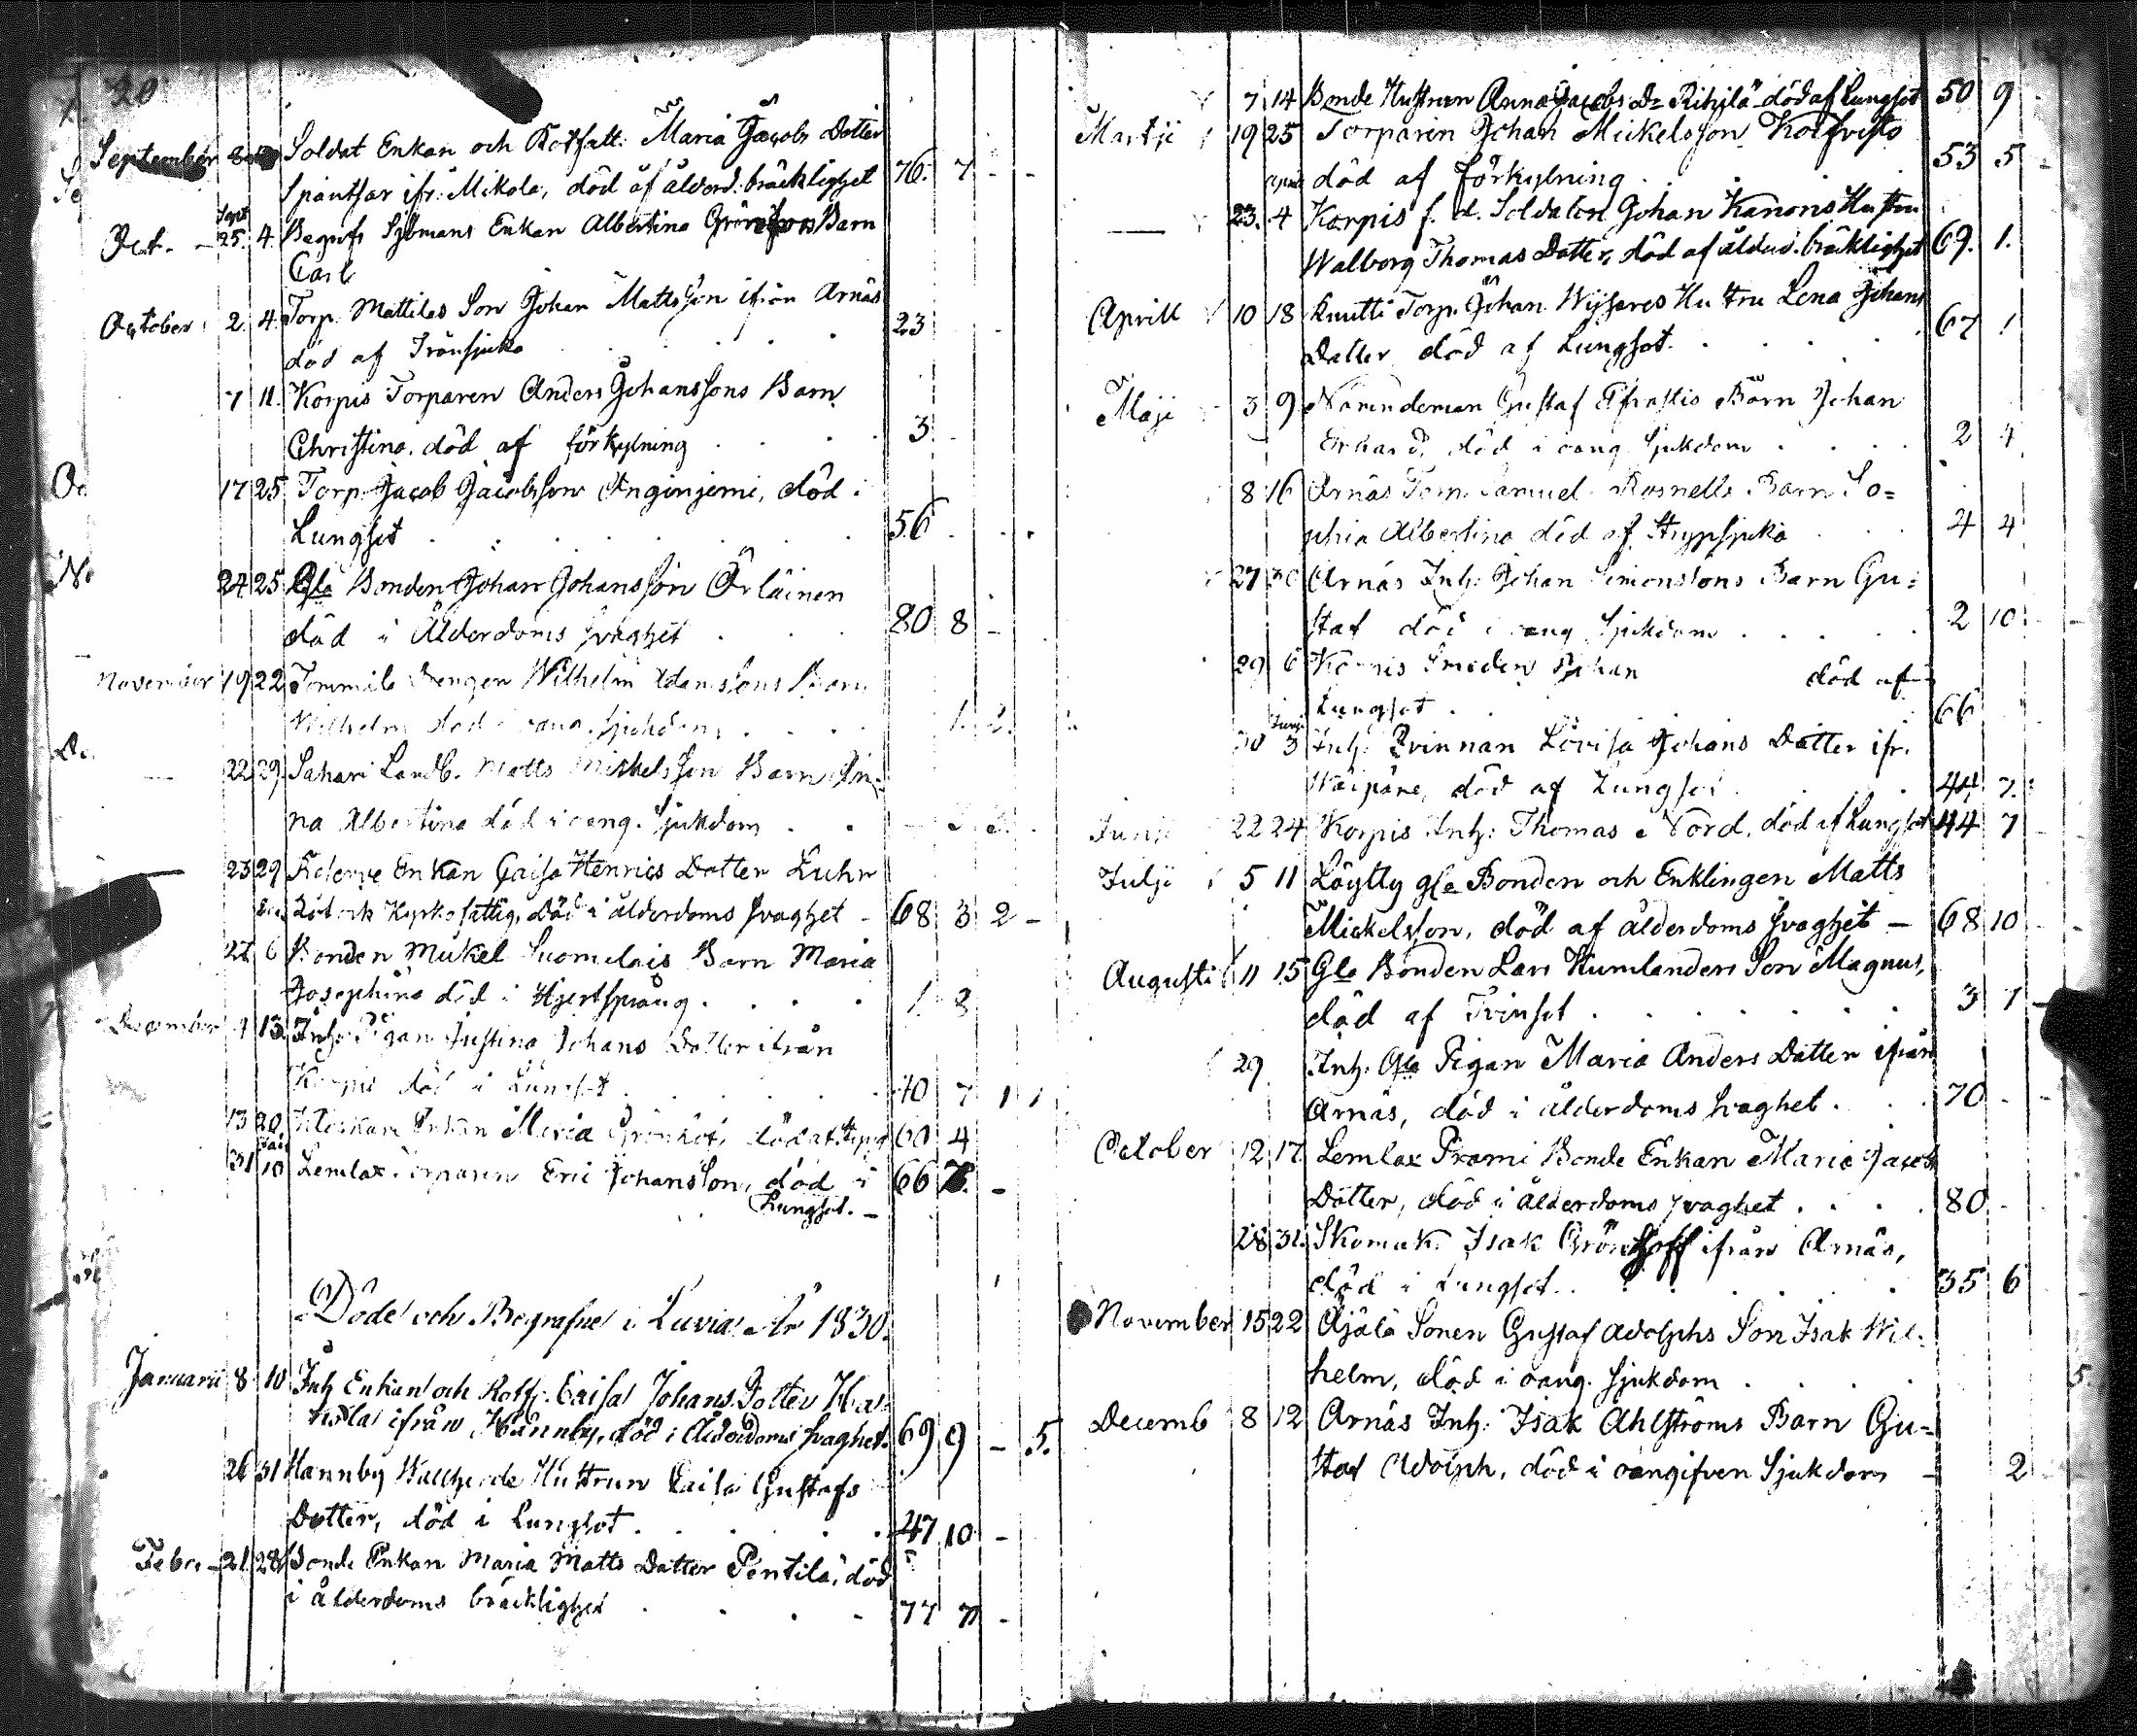 20
September 8 Soldat Enkan och Rotfatt. Maria Jacobs Dotter
Spantsar ifr. Mikola, död af ålderd. bräcklighet 76. 7 - -
Oct. - Sept 25. 4. Begrofs Sjömans Enkan Albertina Grönfors Barn
Carl
October 2 4. Torp. Mattilas Son Johan Mattsson ifrån Arnäs
död af Trånsjuka 23
7 11. Korpis Torparen Anders Johanssons Barn
Christina, död af förkylning 3
17 25 Torp. Jacob Jacobsson Anginjemi, död i
Lungsot 56
24 25 Gla Bonden Johan Johansson Örläinen
död i Ålderdoms svaghet 80 8 -
November 19 22 Tommila Drengen Wilhelm Adamssons Barn
Wilhelm död i oang. sjukdom 1. 2.
22 29. Sahari Landb. Matts Mickelsson Barn An=
na Albertina död i oang. sjukdom - 3. 3.
23 29 Reserve Enkan Caisa Henrics Dotter Luhr
Rot och Kyrkofattig, Död i ålderdoms svaghet - 68 3 2 -
27 6 Bonden Mickel Suomelais Barn Maria
Josephina död i Hjertsprång 1. 3
December 9 13 Inh. Pigan Justina Johans Dotter ifrån
Korpis död i Lungsot 40 7 1 1
13 20. Klockare Enkan Maria Grönholm, död af Styng 60 4
31 Jan 10 Lemlax Torparen Eric Johansson, död i 66 7. -
Lungsot. -
Döde och Begrafne i Luvia År 1830.
Januarii 8 10 Inh Enkan och Rotfj. Caisa Johans Dotter Ha=
nsla ifrån Hannby, död i Ålderdoms svaghet. 69 9 - 5.
26 31 Hannby Hustrun Caisa Gustafs
Dotter, död i Lungsot. 47 10 -
Febr. - 21 28 Bonde Enkan Maria Matts Dotter Pentilä, död
i ålderdoms bräcklighet 77 7 -
7 14 Bonde Hustrun Anna Jacobs Dr Riihilä död af Lungsot 50 9
Martji 19 25 Torparen Johan Mickelsson Koifvisto
död af förkylning 53 5 -
— 23. April 4 Korpis f. d. Soldaten Johan Kanons Hustru
Walborg Thomas Dotter, död af ålderd. bräcklighet 69. 1.
Aprill 10 18 Knutti Torp. Johan Hustru Lena Johans
Dotter död af Lungsot. 67 1
Maji 3 9 Nämndeman Gustaf Efraftis Barn Johan
Erhard, död i oang. Sjukdom 2 4
8 16 Arnäs Torp. Samuel Rosnells Barn So=
phia Albertina död af Strypsjuka 4 4
27 30 Arnäs Inh. Johan Simonssons Barn Gu=
staf död i oang Sjukdom 2 10 -
29 6 Korpis Smeden Johan död af
Lungsot 66
30 Junii 3 Inh. Qvinnan Lovisa Johans Dotter ifr.
Wäipäre, död af Lungsot 44 7.
Junii 22 24 Korpis Inh. Thomas Nord, död af Lungsot 44 7 -
Julji 5 11 Löytty gla Bonden och Enklingen Matts
Mickelsson, död af ålderdoms svaghet - 68 10 -
Augusti 11 15 Gla Bonden Lars Humlanders Son Magnus,
död af Tvinsot 3 1 -
29 Inh. Gla Pigan Maria Anders Dotter ifrån
Arnäs, död i ålderdoms svaghet. 70 -
October 12 17 Lemlax Prami Bonde Enkan Maria Jacobs
Dotter, död i ålderdoms svaghet 80 -
28 31. Skomak. Isak Grönhoff ifrån Arnäs,
död i Lungsot. 35 6
November 15 22 Äjälä Sonen Gustaf Adolphs Son Isak Wil=
helm, död i oang. sjukdom 5.
Decemb 8 12 Arnäs Inh. Isak Ahlströms Barn Gu=
staf Adolph, död i oangifven Sjukdom - 2 -